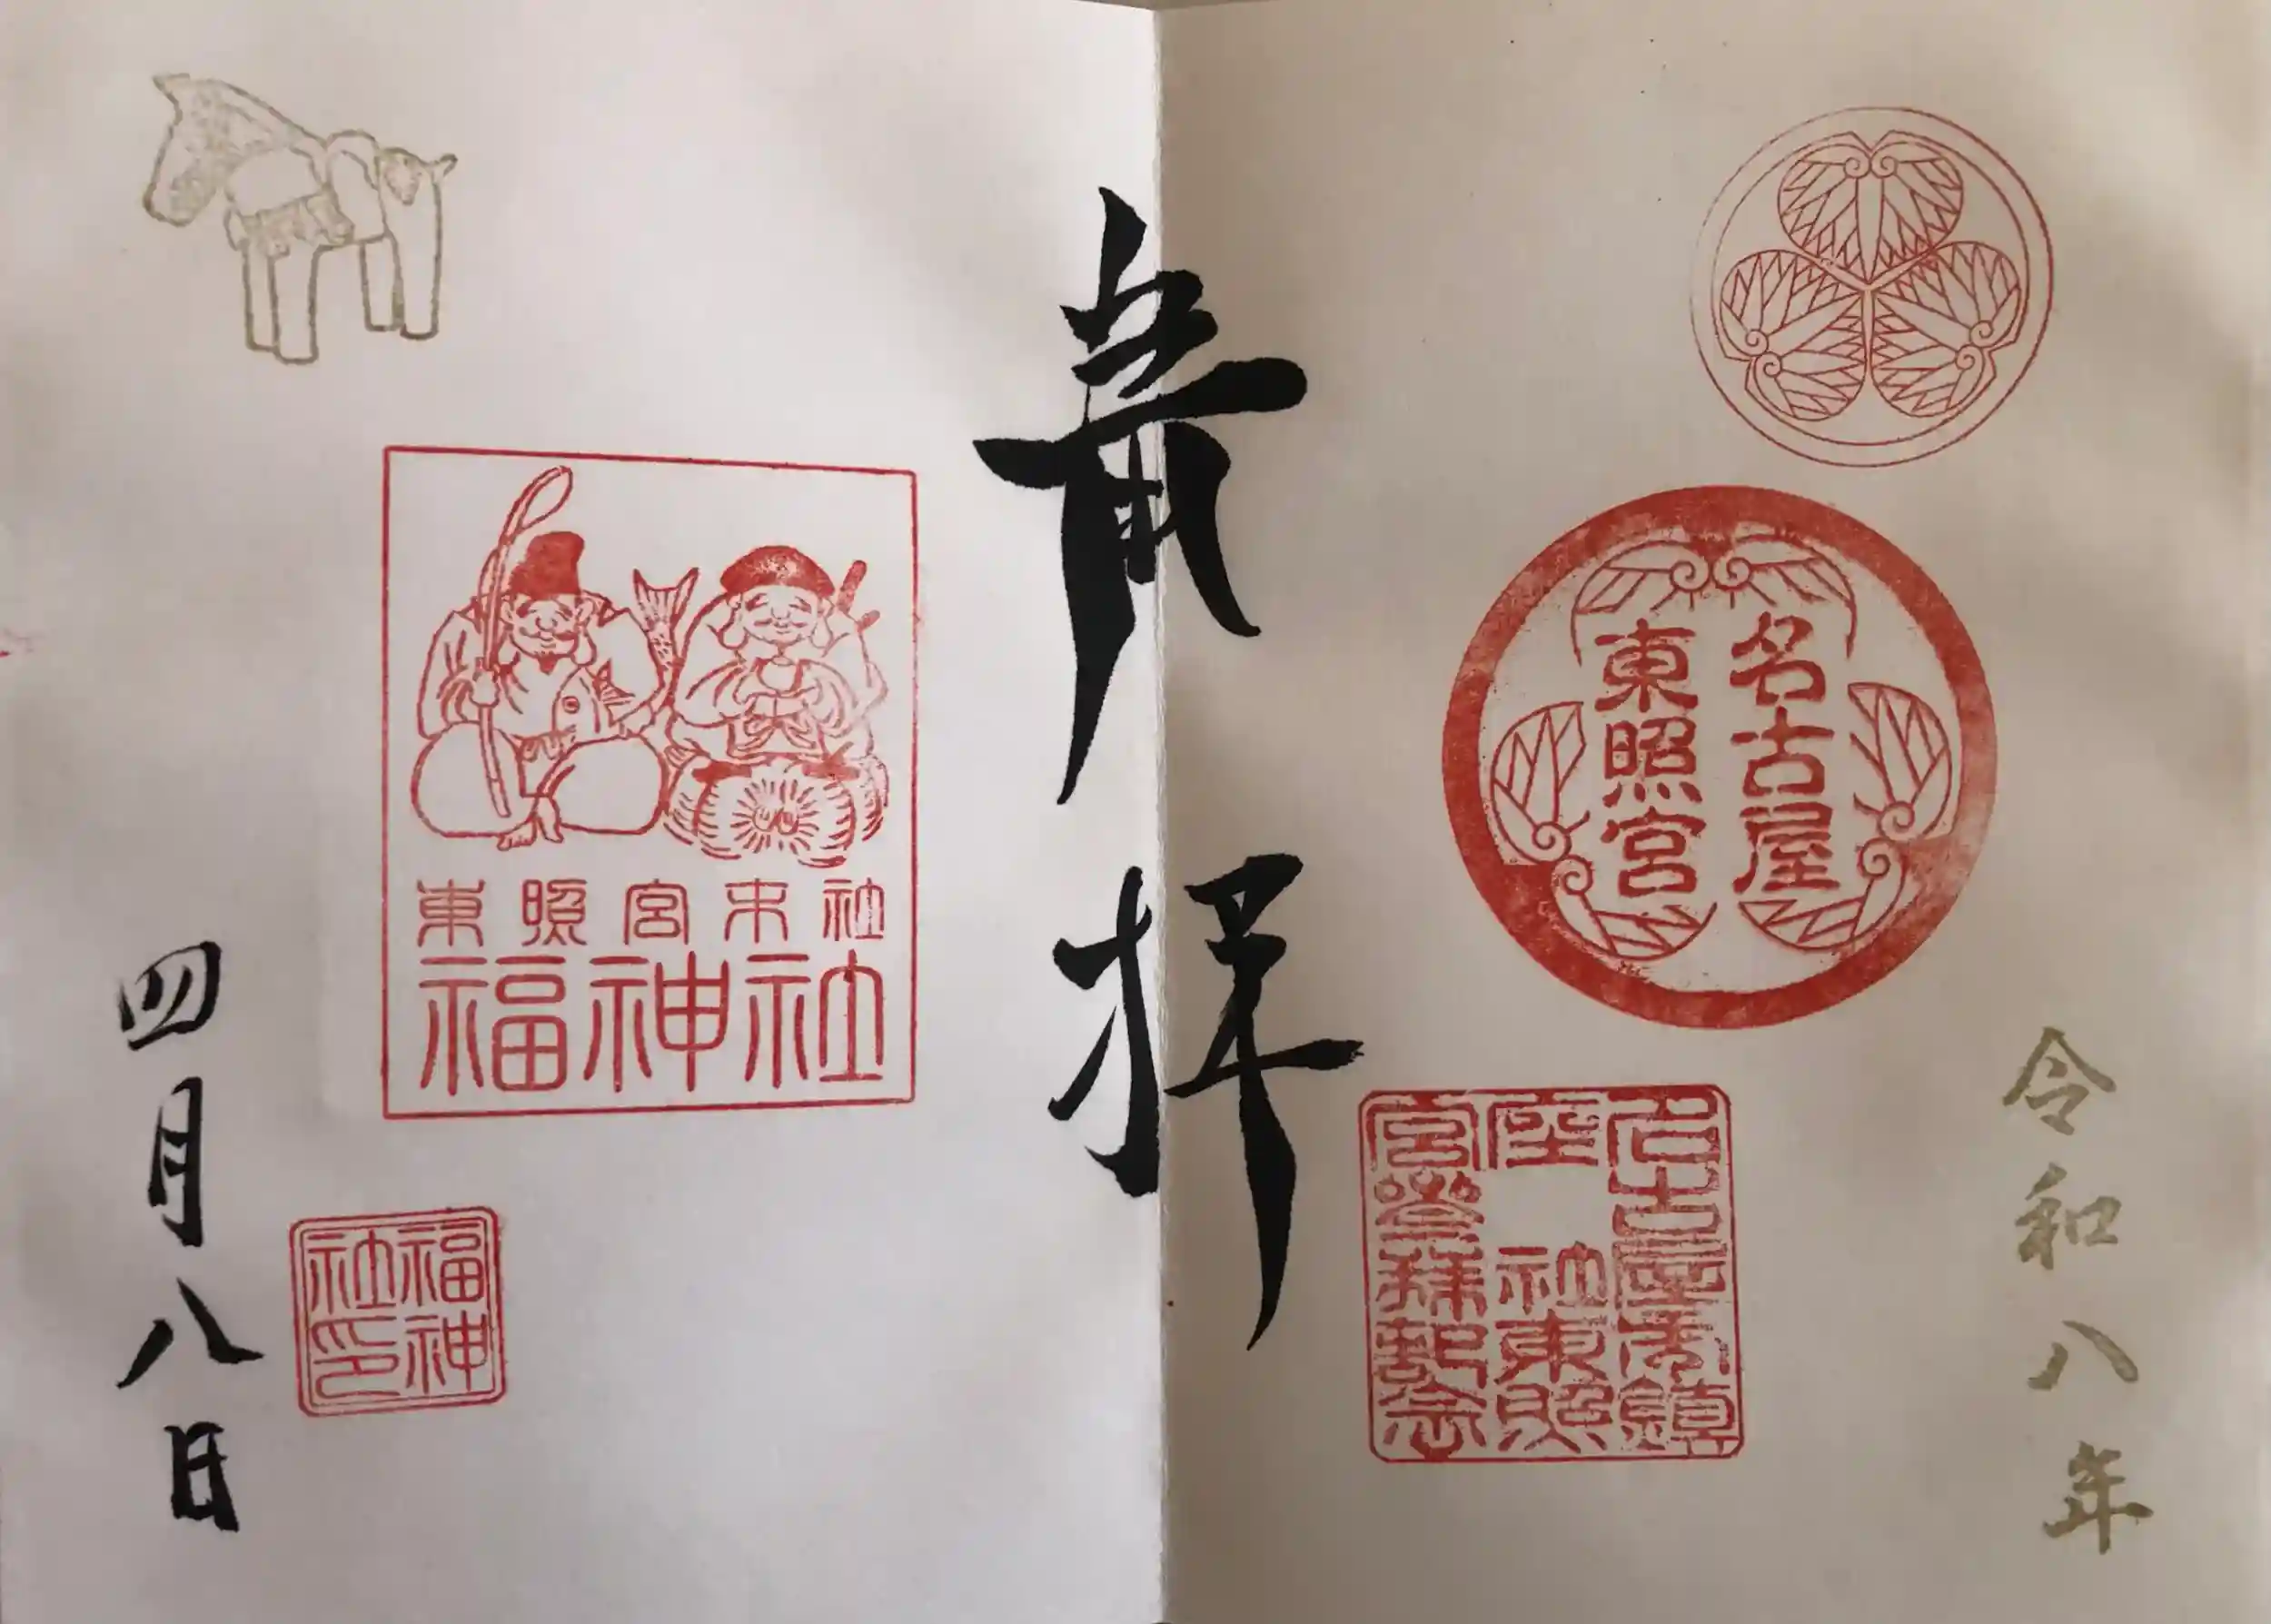 令和八年
名古屋
東照宮
名古屋市鎮
座 社東照
宮參拜記念
拝
東照宮末社
福神社
福神
社印
四月八日